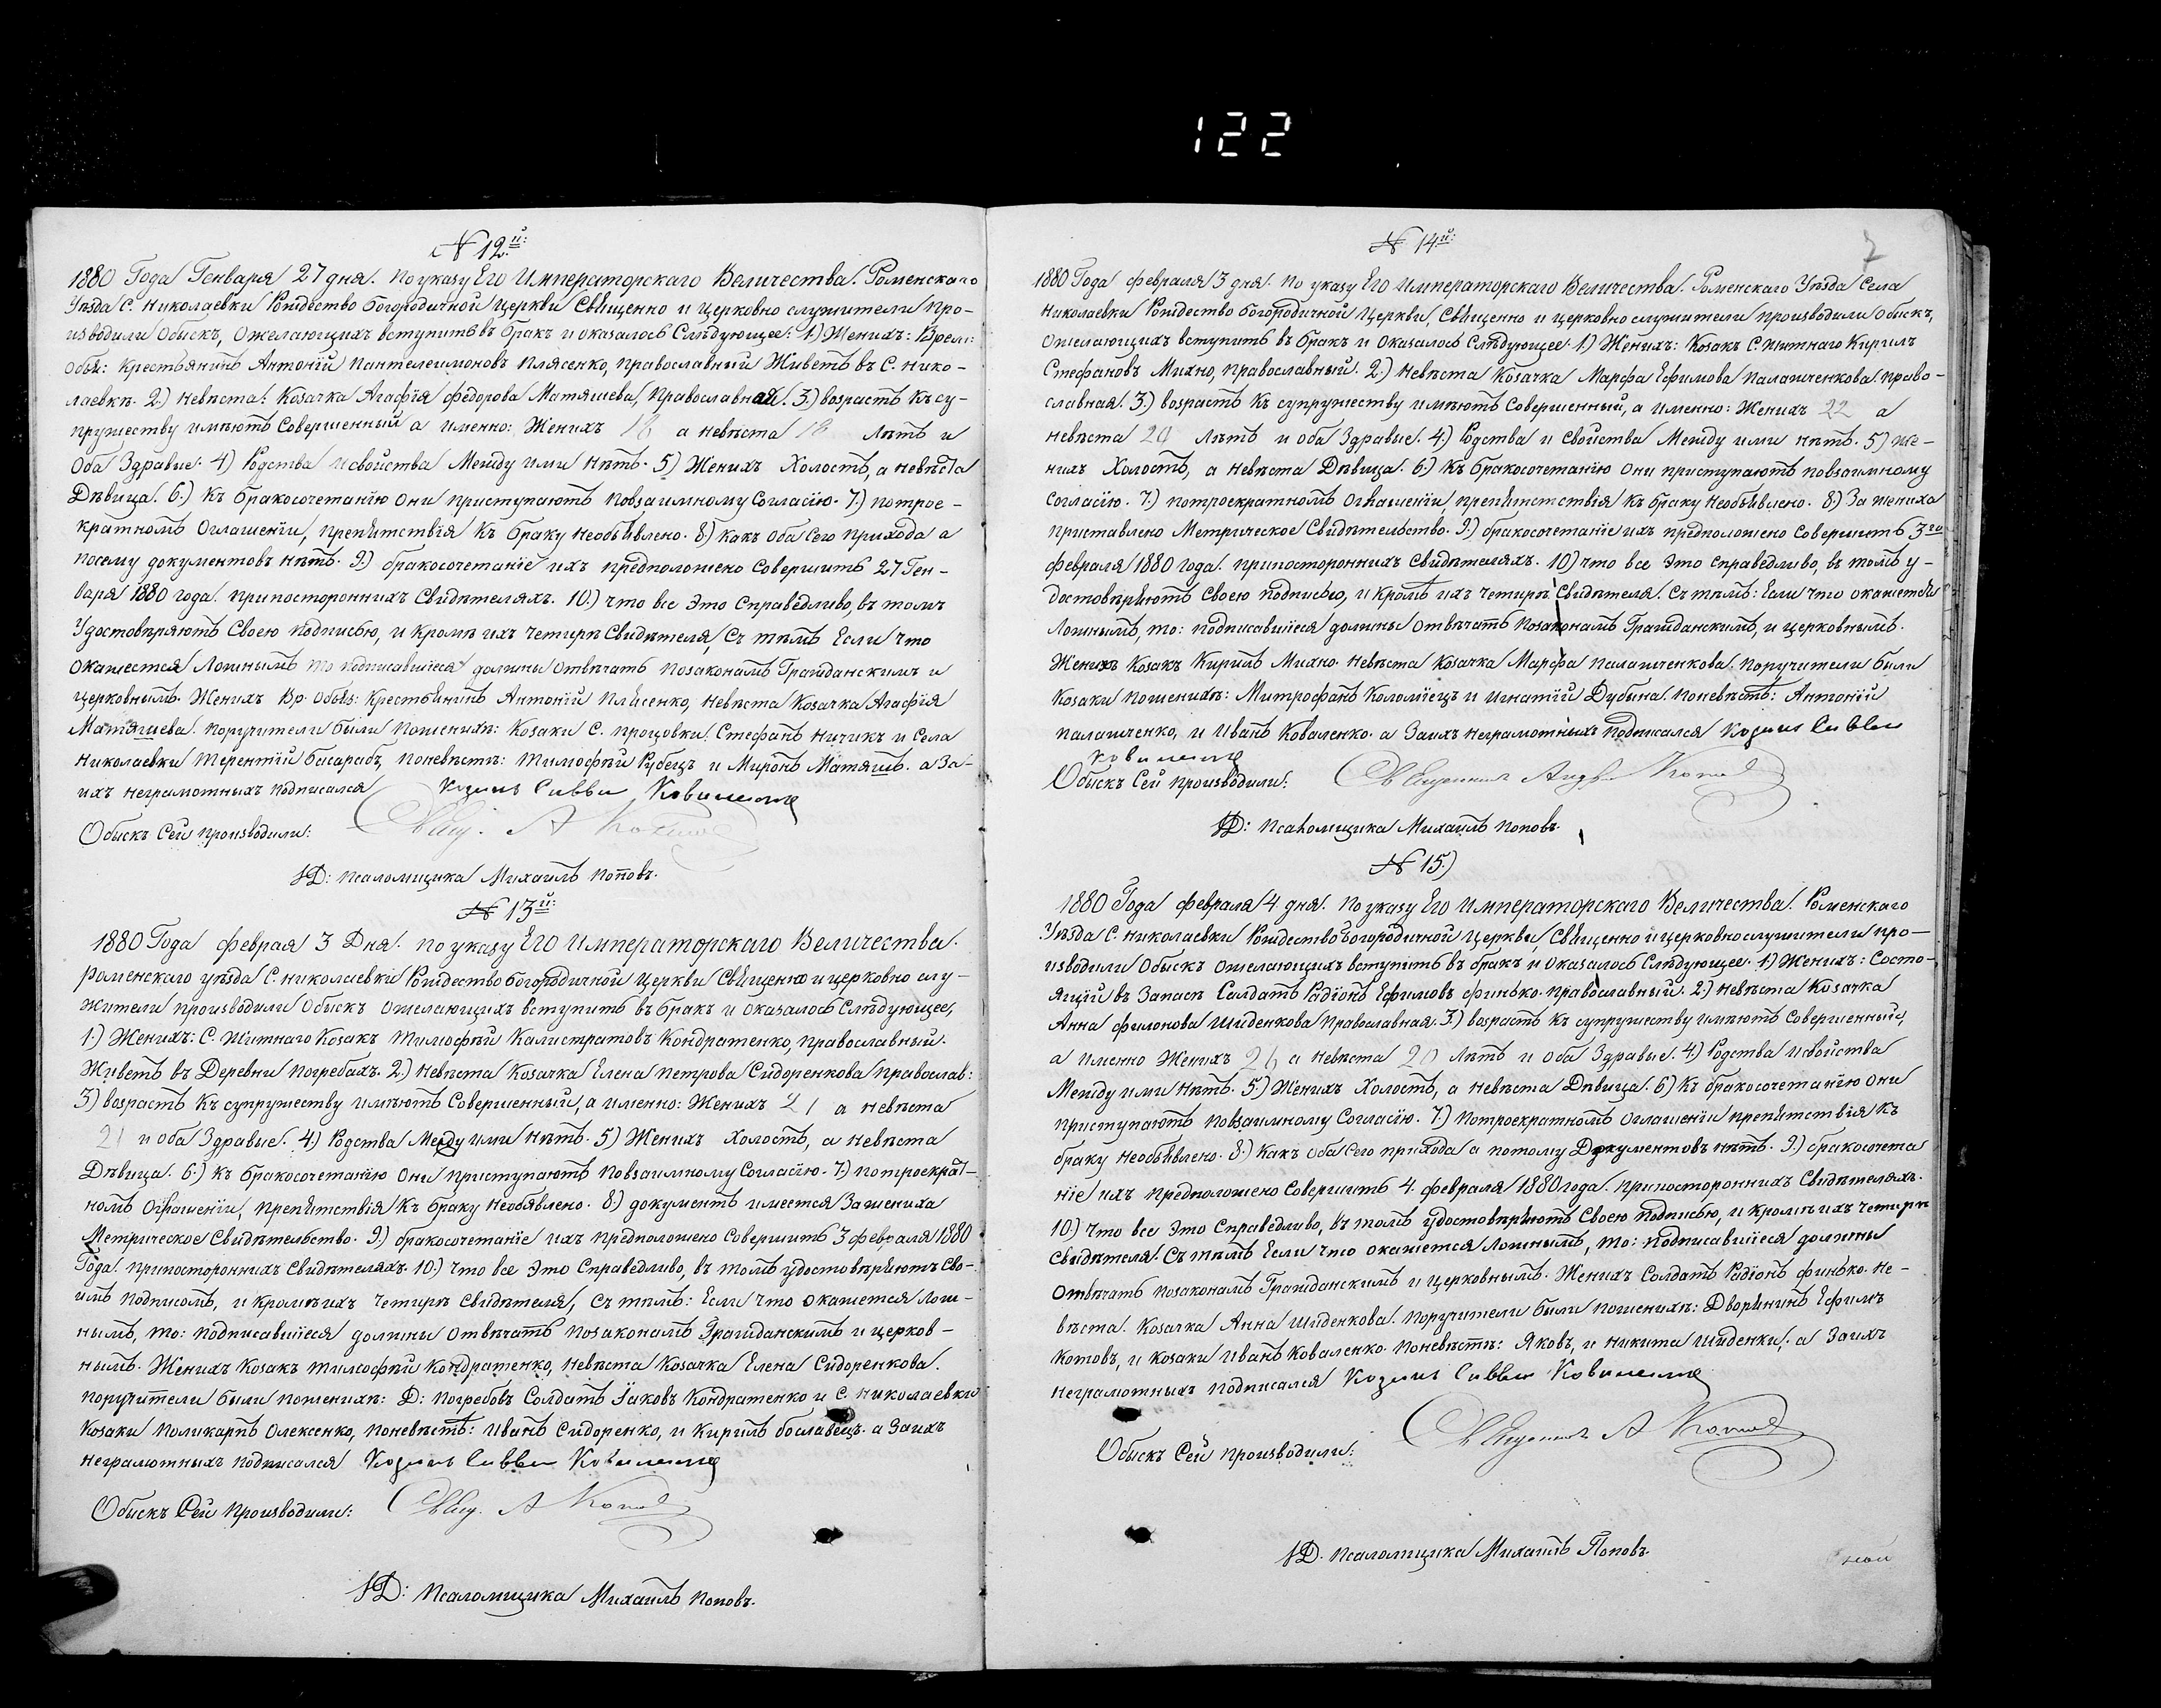 122
№ 12й:
1880 Года Генваря 27 дня. По указу Его Императорскаго Величества. Роменскаго
Уѣзда С. Николаевки Рождество Богородичной Церкви Священно и Церковно служители про-
изводили Обыскъ, Ожелающихъ вступить въ бракъ и оказалось Слѣдующее: 1) Женихъ: Врем:
Обяз: Крестьянинъ Антоній Пантелеимоновъ Плясенко, православный Живетъ въ С. Нико-
лаевкѣ. 2.) Невѣста: Козачка Агафія Федорова Матяшева, Православная. 3.) возрастъ Къ су-
пружеству имѣютъ Совершенный а именно: Женихъ 18 а невѣста 18 Лѣтъ и
Оба Здравые. 4) Родства и свойства Между ими нѣтъ. 5) Женихъ Холостъ, а невѣста
Дѣвица. 6.) Къ бракосочетанію Они приступаютъ повзаимному Согласію. 7.) потрое-
кратномъ Оглашеніи, препятствія Къ браку Необявлено. 8.) какъ Оба Сего Прихода а
посему документовъ нѣтъ. 9.) бракосочетаніе ихъ предположено Совершить 27 Ген-
варя 1880 года. припостороннихъ Свидѣтеляхъ. 10.) что все Это Справедливо, въ томъ
Удостовѣряютъ Своею подписью, и Кромѣ ихъ четырѣ Свидѣтеля, Съ тѣмъ Если что
окажется Ложнимъ то подписавшіеся должны Отвѣчать позаконамъ Гражданскимъ и
церковнымъ. Женихъ Вр. Обяз: Крестьянинъ Антоній Плясенко, Невѣста Козачка Агафія
Матяшева. поручители были пожениху: Козаки С. процовки Стефанъ Ничикъ и Села
Николаевки Терентій Басарабъ, поневѣстѣ: Тимофѣй Рубецъ и Миронъ Матяшъ. а За-
ихъ неграмотныхъ подписался Козакъ Савва Коваленко
Обыскъ Сей производили: Свящ. А Котовъ
ИД: псаломщика Михаилъ Поповъ.
№ 13й:
1880 Года феврая 3 Дня. по указу Его Императорскаго Величества.
Роменскаго уѣзда С. Николаевки Рождество Богородичной Церкви Священно и церковно слу-
жители производили Обыскъ Ожелающихъ вступить въ бракъ и оказалось Слѣдующее,
1.) Женихъ: С. Житнаго Козакъ Тимофѣй Калистратовъ Кондратенко, православный.
Живетъ въ Деревни Погребахъ. 2.) Невѣста Козачка Елена Петрова Сидоренкова православ:
3) возрастъ Къ супружеству имѣютъ Совершенный, а именно: Женихъ 21 а невѣста
21 и оба Здравые. 4.) Родства Между ими нѣтъ. 5) Женихъ Холостъ, а невѣста
Дѣвица. 6.) Къ бракосочетанію Они приступаютъ повзаимному Согласію. 7.) потроекрат-
номъ Оглашеніи, препятствія Къ браку необявлено. 8.) документъ имеется Зажениха
Метрическое Свидѣтельство. 9.) бракосочетаніе ихъ предположено Совершить 3 февраля 1880
Года. припостороннихъ Свидѣтеляхъ. 10.) что все Это Справедливо, въ томъ удостовѣряютъ Сво-
имъ подписомъ, и Кромѣ ихъ четырѣ Свидѣтеля, Съ тѣмъ: Если что окажется Лож-
нымъ, то: подписавшіеся должни Отвѣчать позаконамъ Гражданскимъ и церков-
нымъ. Женихъ Козакъ Тимофѣй Кондратенко, Невѣста Козачка Елена Сидоренкова.
поручители были поженихѣ: Д: Погребовъ Солдатъ Іаковъ Кондратенко и С. Николаевки
Козаки Поликарпъ Олексенко, поневѣстѣ: Иванъ Сидоренко, и Кирилъ Бославецъ. а Заихъ
неграмотныхъ подписался Козакъ Савва Коваленко
Обыскъ Сей производили: Свящ. А Котовъ
ИД: Псаломщика Михаилъ Поповъ.
7
№ 14й:
1880 Года февраля 3 дня. По указу Его Императорскаго Величества. Роменскаго Уѣзда Села
Николаевки Рождество Богородичной Церкви, Священно и церковно служители производили Обыскъ,
Ожелающихъ вступить въ бракъ и Оказалось Слѣдующее. 1.) Женихъ: Козакъ С. Житнаго Кирилъ
Стефановъ Михно, православный. 2.) Невѣста Козачка Марфа Ефимова Палашченкова право-
славная. 3.) возрастъ Къ супружеству имѣютъ Совершенный, а именно: Женихъ 22 а
невѣста 20 Лѣтъ и оба Здравые. 4.) Родства и Свойства Между ими нѣтъ. 5) Же-
нихъ Холостъ, а невѣста Дѣвица. 6.) Къ бракосочетанію Они приступаютъ повзаимному
Согласію. 7.) потроекратномъ Оглашеніи, препятствія Къ браку необявлено. 8.) За жениха
приставлено Метрическое Свидѣтельство. 9.) бракосочетаніе ихъ предположено Совершить 3го
февраля 1880 года. припостороннихъ Свидѣтеляхъ. 10) что все Это Справедливо, въ томъ у-
достовѣряютъ Своею подписью, и Кромѣ ихъ четырѣ Свидѣтеля. Съ тѣмъ: Если что окажется
Ложнымъ, то: подписавшіеся должны Отвѣчать позаконамъ Гражданскимъ, и церковнымъ.
Женихъ Козакъ Кирилъ Михно. Невѣста Козачка Марфа Палашченкова. поручители были
Козаки поженихѣ: Митрофанъ Коломіецъ и Игнатій Дубына. поневѣстѣ: Антоній
Палашченко, и Иванъ Коваленко. а Заихъ неграмотныхъ подписался Козакъ Савва
Коваленко
Обыскъ Сей производили: Священникъ Андрей Котовъ
ИД: псаломщика Михаилъ Поповъ.
№ 15.)
1880 Года февраля 4 дня. По указу Его Императорскаго Величества. Роменскаго
Уѣзда С. Николаевки Рождество Богородичной Церкви Священно и церковно служители про-
изводили Обыскъ Ожелающихъ вступить въ бракъ и Оказалось Слѣдующее. 1) Женихъ: Состо-
ящій въ Запасѣ Салдатъ Радіонъ Ефимовъ Финько. Православный. 2.) Невѣста Козачка
Анна Филонова Шиденкова Православная. 3.) возрастъ Къ супружеству имѣютъ Совершенный,
а именно Женихъ 26 а невѣста 20 Лѣтъ и оба Здравые. 4.) Родства и свойства
Между ими нѣтъ. 5.) Женихъ Холостъ, а невѣста Дѣвица. 6) Къ бракосочетанію Они
приступаютъ повзаимному Согласію. 7.) Потроекратномъ Оглашеніи препятствія Къ
браку необявлено. 8.) Какъ Оба Сего прихода а потому Документовъ нѣтъ. 9.) бракосочета
ніе ихъ предположено Совершить 4. февраля 1880 года. припостороннихъ Свидѣтеляхъ.
10) что все Это Справедливо, въ томъ удостовѣряютъ Своею подписью, и кромѣ ихъ четырѣ
Свидѣтеля. Съ тѣмъ Если что окажется Ложнымъ, то: подписавшіеся должны
Отвѣчать позаконамъ Гражданскимъ и Церковнымъ. Женихъ Солдатъ Радіонъ Финько. Не-
вѣста. Козачка Анна Шиденкова. Поручители были поженихѣ: Дворянинъ Ефимъ
Котовъ, и Козаки Иванъ Коваленко. поневѣстѣ: Яковъ, и Никита Шиденки,: а Заихъ
неграмотныхъ подписался Козакъ Савва Коваленко
Обыскъ Сей производили: Священникъ А Котовъ
ИД. псаломщика Михаилъ Поповъ.